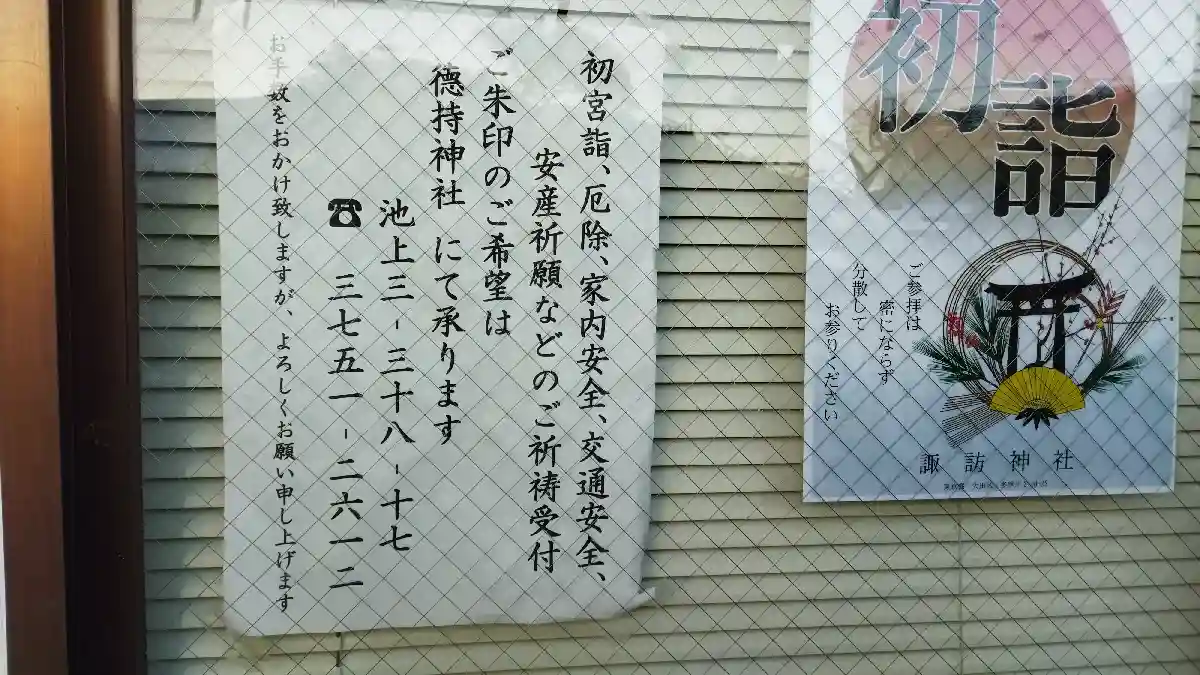 初宮詣、厄除、家内安全、交通安全、
安産祈願などのご祈祷受付
ご朱印のご希望は
德持神社 にて承ります
池上三-三十八-十七
☎ 三七五一-二六一二
お手数をおかけ致しますが、よろしくお願い申し上げます
初詣
ご参拝は
密にならず
分散して
お参りください
諏訪神社